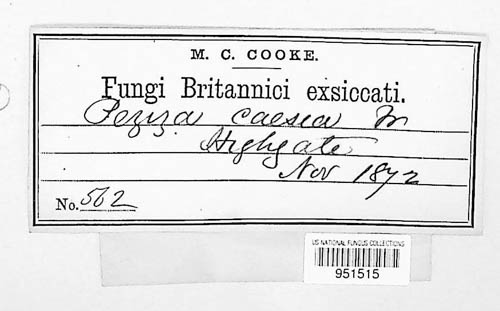 M. C. COOKE.
Fungi Britannici exsiccati.
Peziza caesia Fr
Highgate
Nov 1872
No. 562
US NATIONAL FUNGUS COLLECTIONS
951515